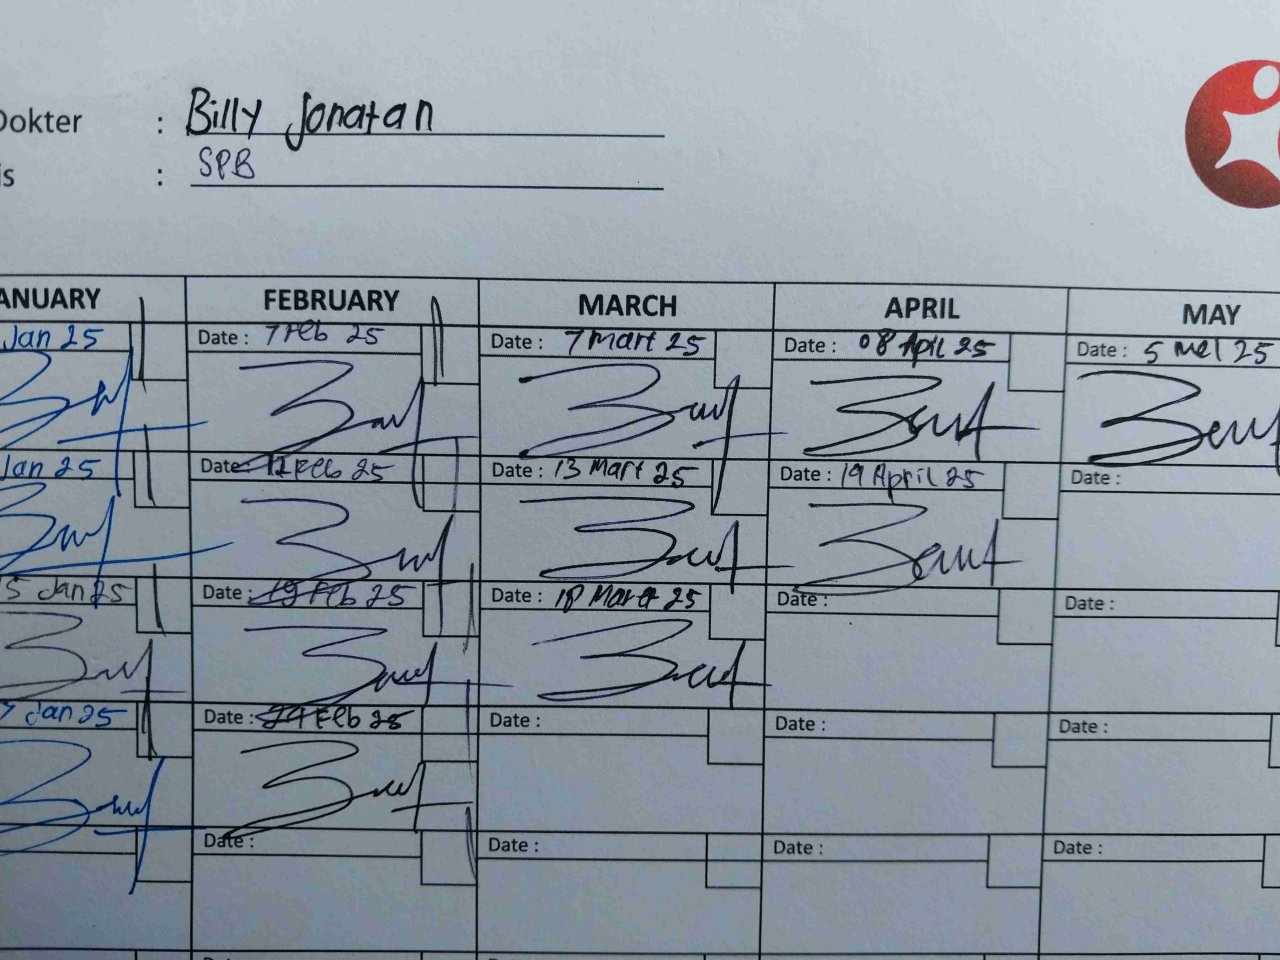 Dokter : Billy Jonatan
is : SPB
ANUARY FEBRUARY MARCH APRIL MAY
Jan 25 Date : 7 Feb 25 Date : 7 Mart 25 Date : 08 April 25 Date : 5 Mei 25
Jan 25 Date : 12 Feb 25 Date : 13 Mart 25 Date : 19 April 25 Date :
5 Jan 25 Date : 19 Feb 25 Date : 18 Maret 25 Date : Date :
7 Jan 25 Date : 24 Feb 25 Date : Date : Date :
Date : Date : Date : Date :